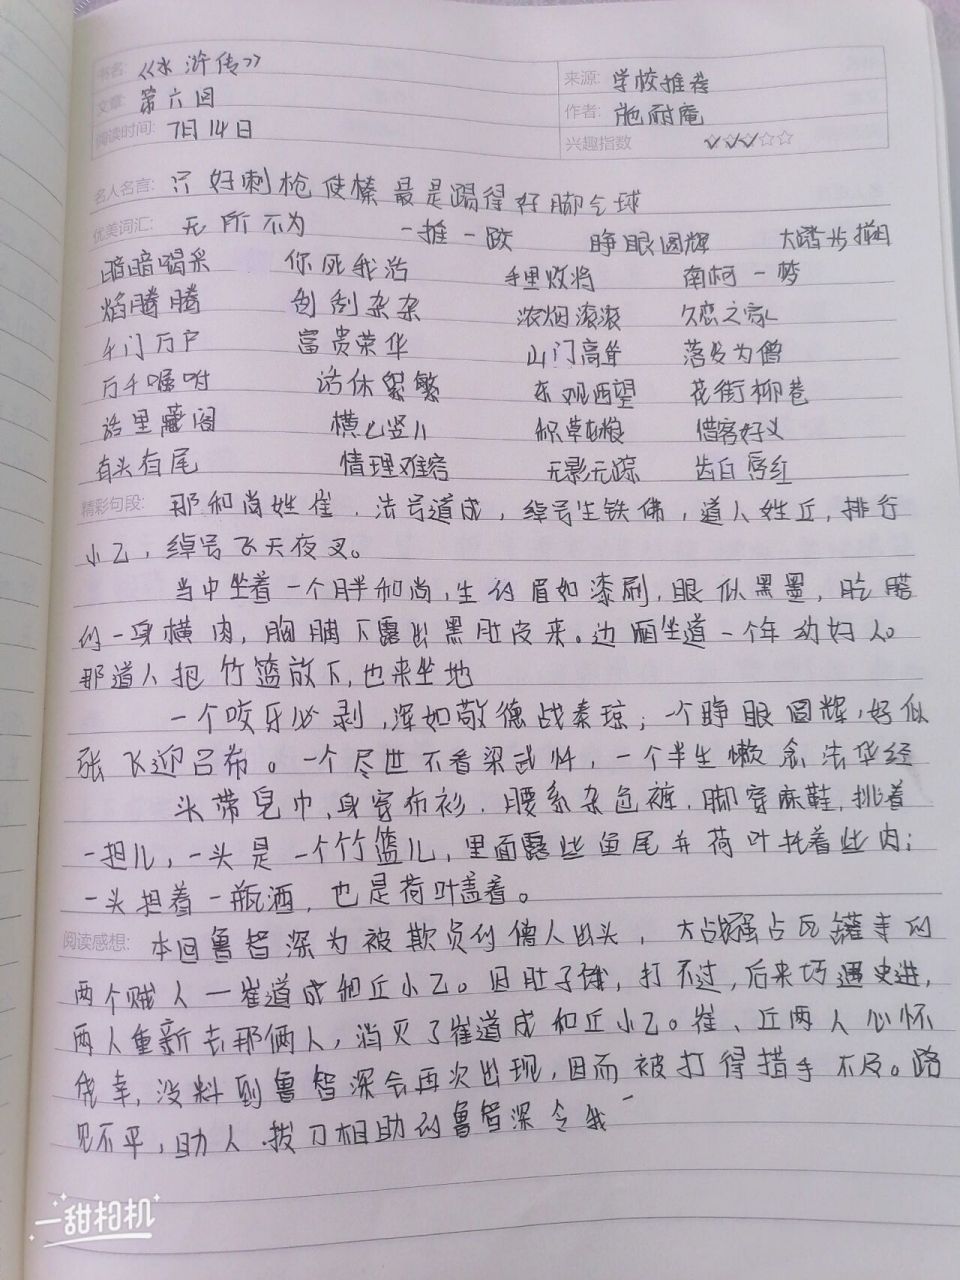 书名: 《水浒传》
来源: 学校推荐
文章: 第六回
作者: 施耐庵
阅读时间: 7月14日
兴趣指数
名人名言: 只好刺枪使棒 最是踢得好脚气球
优美词汇: 无所不为 一推一跤 睁眼圆辉 大踏步
暗暗喝采 你死我活 手里败将 南柯一梦
焰腾腾 刮刮杂杂 浓烟滚滚 久恋之家
千门万户 富贵荣华 山门高耸 落发为僧
万千嘱咐 话休絮繁 东观西望 花街柳巷
话里藏阄 横七竖八 积草屯粮 惜客好义
有头有尾 情理难容 无影无踪 齿白唇红
精彩句段: 那和尚姓崔，法号道成，绰号生铁佛，道人姓丘，排行
小乙，绰号飞天夜叉。
当中坐着一个胖和尚，生的眉如漆刷，眼似黑墨，肐䐜
的一身横肉，胸脯下露出黑肚皮来。边厢坐道一个年幼妇人。
那道人把竹篮放下，也来坐地
一个咬牙必剥，浑如敬德战秦琼；一个睁眼圆辉，好似
张飞迎吕布。一个尽世不看梁武忏，一个半生懒念法华经
头带皂巾，身穿布衫，腰系杂色裤，脚穿麻鞋，挑着
一担儿，一头是一个竹篮儿，里面露些鱼尾并荷叶托着些肉；
一头担着一瓶酒，也是荷叶盖着。
阅读感想: 本回鲁智深为被欺负的僧人出头，大战强占瓦罐寺的
两个贼人一崔道成和丘小乙。因肚子饿，打不过，后来巧遇史进，
两人重新去那俩人，消灭了崔道成和丘小乙。崔、丘两人心怀
侥幸，没料到鲁智深会再次出现，因而被打得措手不及。路
见不平，助人拔刀相助的鲁智深令我
一甜相机